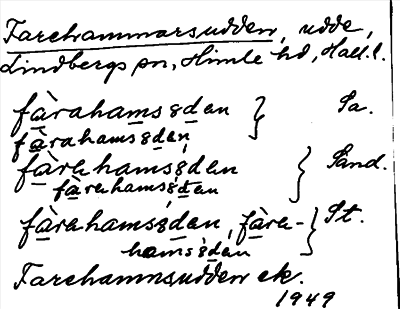 Farehammarsudden, udde,
Lindbergs sn, Himle hd, Hall. l.
fàrahamsɞdan } Sa.
fàrahamsɞdan
fàrahamsɞdan } Sand.
fàrahamsɞdan
fàrahamsɞdan, fàra- } St.
hamsɞdan
Farehamnsudden ek.
1949